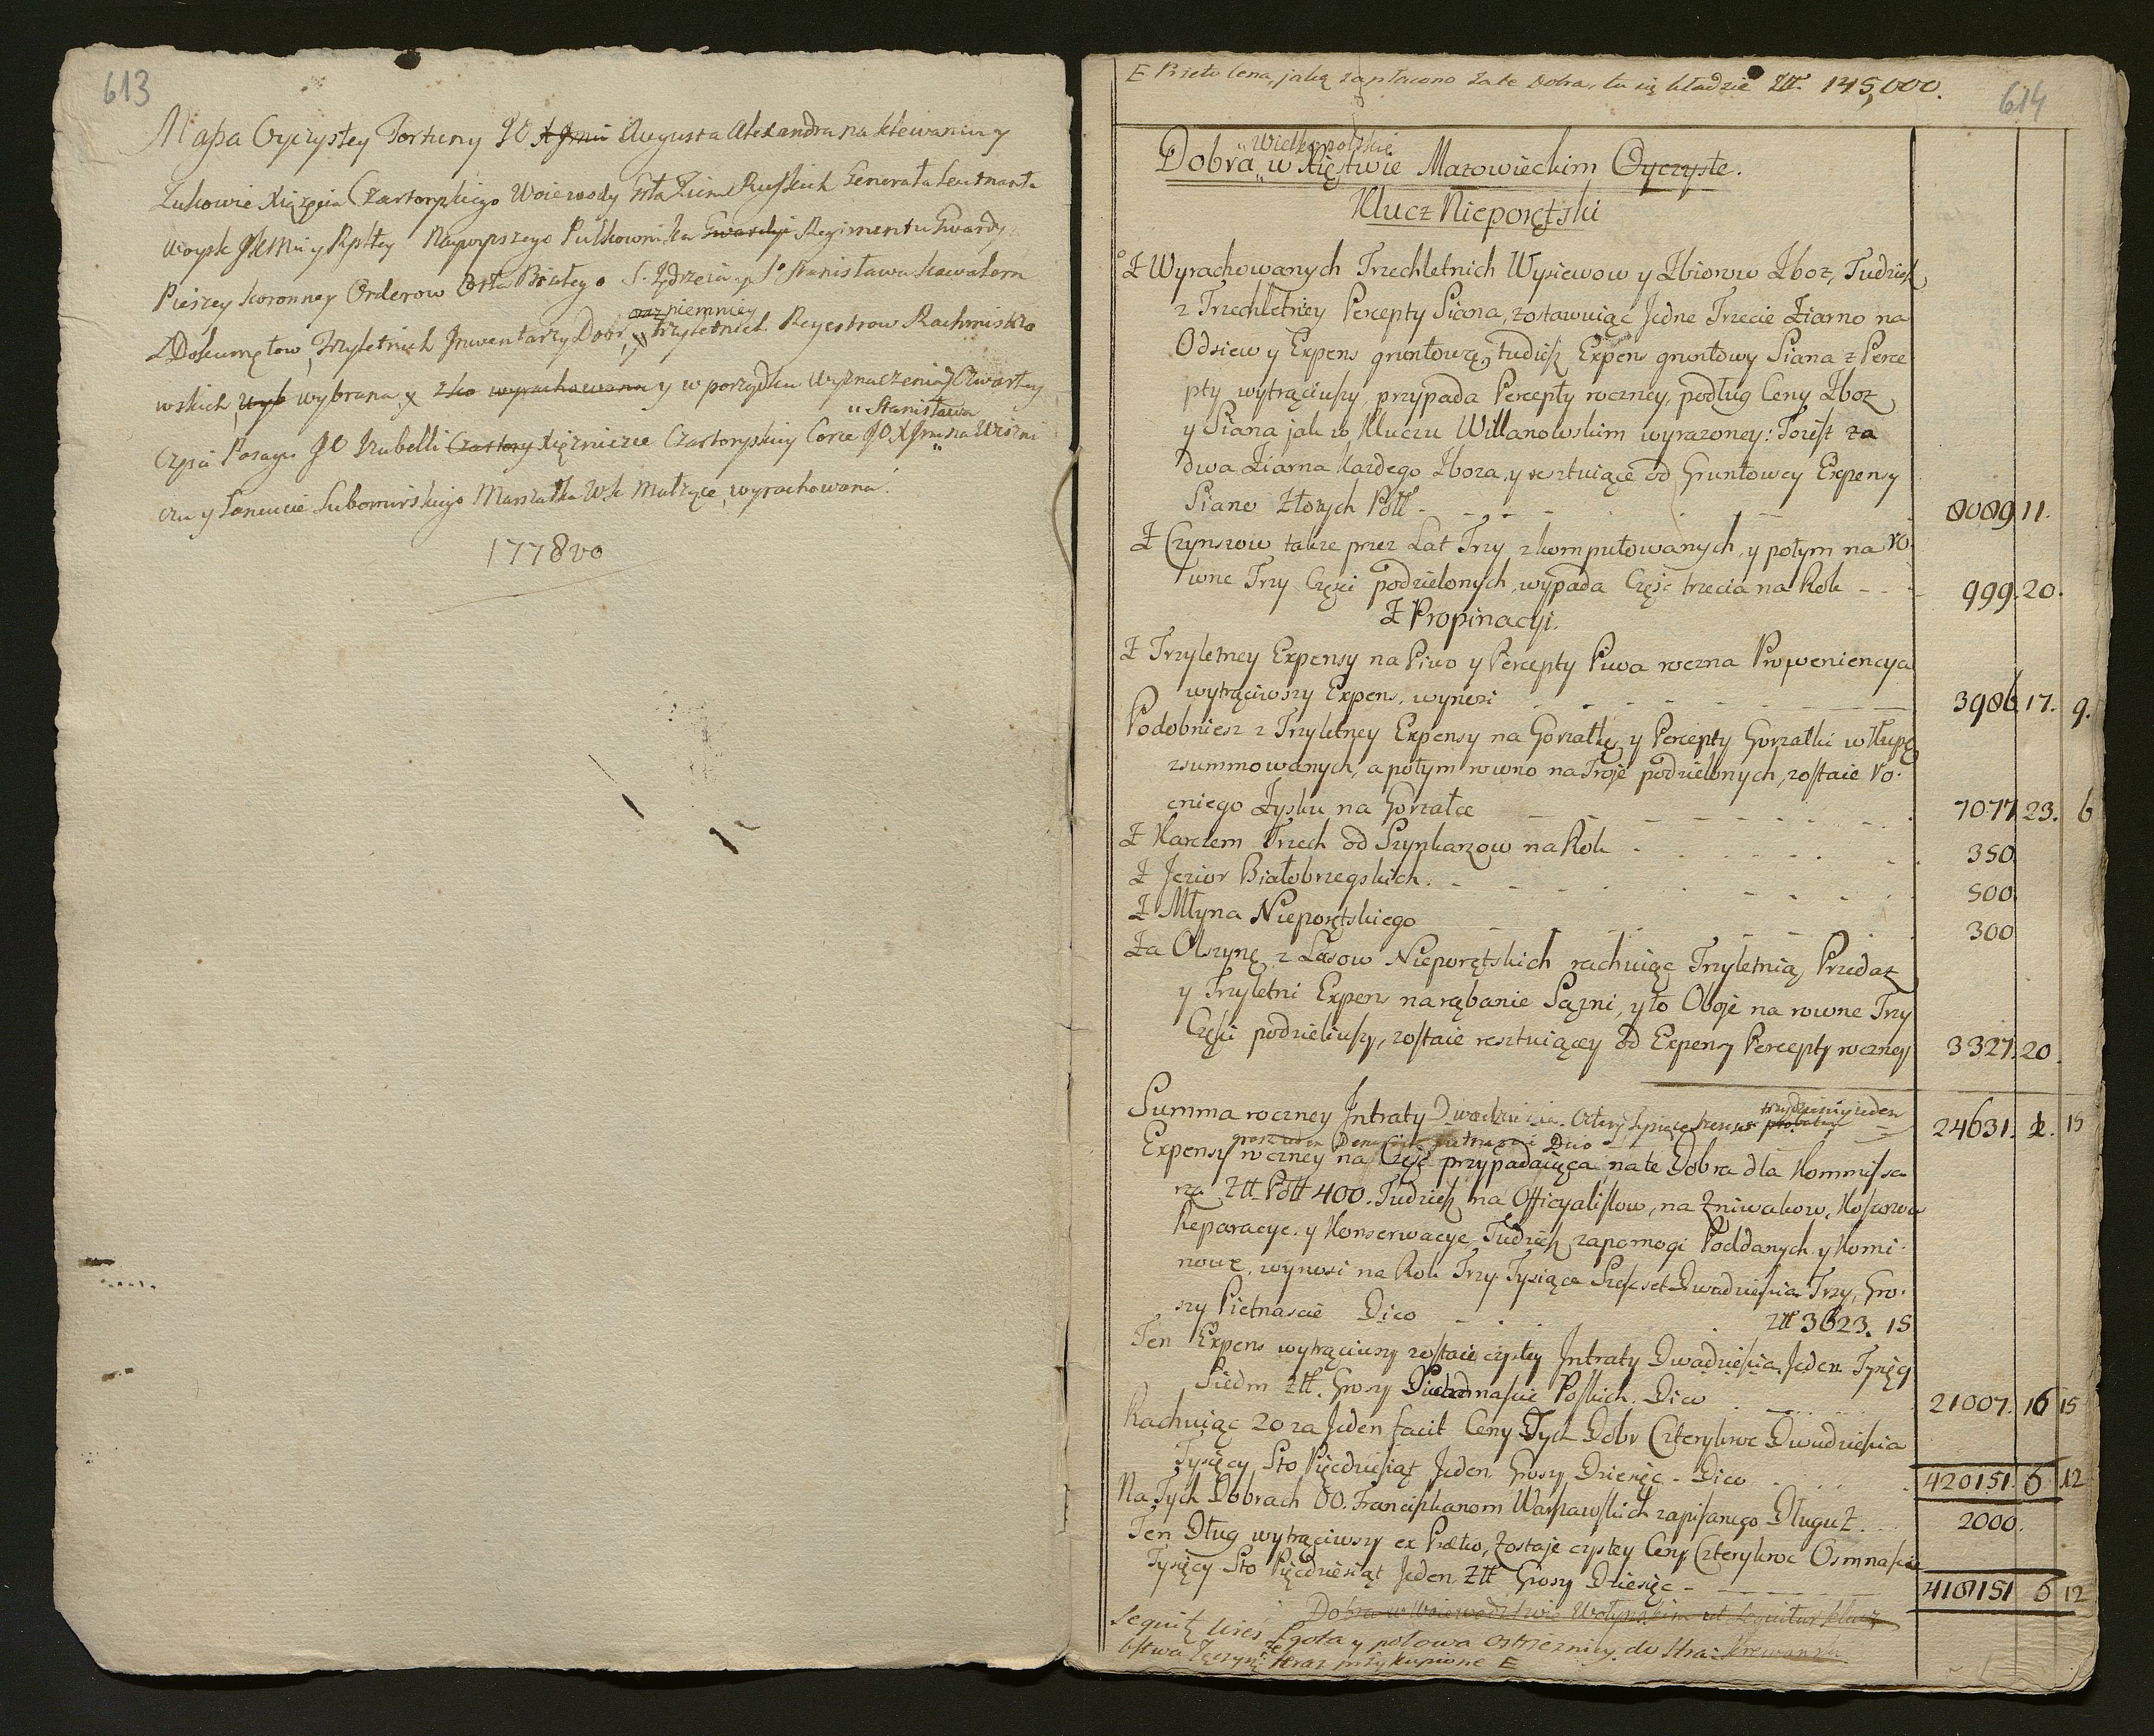 613
Massa Oyczystey Fortuny JO X Jmci Augusta Alexandra na Klewaniu y
Zukowie Xiążęcia Czartoryskiego Woiewody Gła Ziem Ruskich Generała Leutnanta
Woysk JKMci y Rpltey Naywyższego Pułkownika Gwardyi Regimentu Gwardyi
Pieszey Koronney Orderow Orła Białego S. Jędrzeia y So Stanisława Kawalera
oraz niemniey
Z Dokumętow, Trzyletnich Jnwentarzy Dobr, y trzyletnich Regestrow Rachmistrzo
wskich, wyb wybrana y zko wyrachowana y w porządku wyznaczenia Czwartey
" Stanisława
Częsci Posagu JO Izabelli Czartory Xiężniczce Czartoryskiey Corce JO X Jmci na Wisni
czu y Lancucie Lubomirskiego Marszałka WK Małżące, wyrachowana.
1778vo
E Prieto Cena, jaką zapłacono za te Dobra, tu się kładzie Złł. 145,000.
614
" Wielkopolskie
Dobra " w Xięstwie Mazowieckim Oyczyste.
Klucz Nieporętski
Z Wyrachowanych Trzechletnich Wysiewow y Zbiorow Zboz, Tudzież
z Trzechletniey Percepty Siana, zostawuiąc Jedne Trzecie Ziarno na
Odsiew y Expens gruntowę, tudzież Expens gruntowy Siana z Perce
pty wytrąciwszy, przypada Percepty roczney, podług Ceny Zboz
y Siana jak w Kluczu Willanowskim wyrazoney: Toiest za
dwa Ziarna Kazdego Zboza, y resztuiące od Gruntowey Expensy
Siano Złotych Poll - - - - 8089 11.
Z Czynszow takze przez Lat Trzy zkomputowanych, y potym na ro-
wne Trzy Części podzielonych, wypada Częśc trzecia na Rok - - 999. 20.
Z Propinacyi.
Z Trzyletney Expensy na Piwo y Percepty Piwa roczna Proweniencya
wytrąciwszy Expens, wynosi - - - - 3986 17. 9.
Podobniesz z Trzyletney Expensy na Gorzałkę y Percepty Gorzałki w Kupę
zsummowanych, a potym rowno na Troje podzielonych, zostaie ro-
cznego Zysku na Gorzałce - - - - 7077 23. 6
Z Karczem Trzech od Szynkarzow na Rok - - - - 350
Z Jezior Białobrzegskich. - - - - 500.
Z Młyna Nieporętskiego - - - - 300
Za Olszynę z Lasow Nieporętskich rachuiąc Trzyletnią Przedaż
y Trzyletni Expens na rąbanie Sążni, y to Oboje na rowne Trzy
Części podzieliwszy, zostaie resztuiącey od Expensy Percepty roczney 3327. 20.
trzydziesci jeden
Summa roczney Jntraty Dwadziescia Cztery Tysiące szescset 24631. 12. 15
Expensy roczney na Część przypadaiącą na te Dobra dla Kommissa
rza Złł Poll 400. Tudzież na Officyalistow, na Zniwakow, Kosarzow
Reparacye y Konserwacye, Tudzież zapomogi Poddanych y Komi-
nowe, wynosi na Rok Trzy Tysiące Szescset Dwadziescia Trzy, Gro-
szy Pietnascie Dico - - - Złł 3623. 15
Ten Expens wytrąciwszy zostaie czystey Jntraty Dwadziescia Jeden Tysięcy
Siedm Złł. Groszy Polskich. Dico 21007. 16 15
Rachuiąc 20 za Jeden facit Ceny Tych Dobr Czterykroc Dwadziescia
Tysięcy Sto Pięcdziesiąt Jeden Groszy Dziesięc - Dico 420151. 6 12
Na Tych Dobrach OO. Franciszkanom Warszawskich zapisanego Długu Z... 2000.
Ten Dług wytrąciwszy ex Prætio, Zostaje czystey Ceny Czterykroc Osmnascie
Tysięcy Sto Pięcdziesiąt Jeden Złł Groszy Dziesięc - 418151 6 12
Dobra w Woiewodztwie Wołynskim ut sequitur Klucz
Sequit Wies Zgoła y połowa Ostrzeznicy do
teraz przykupione E